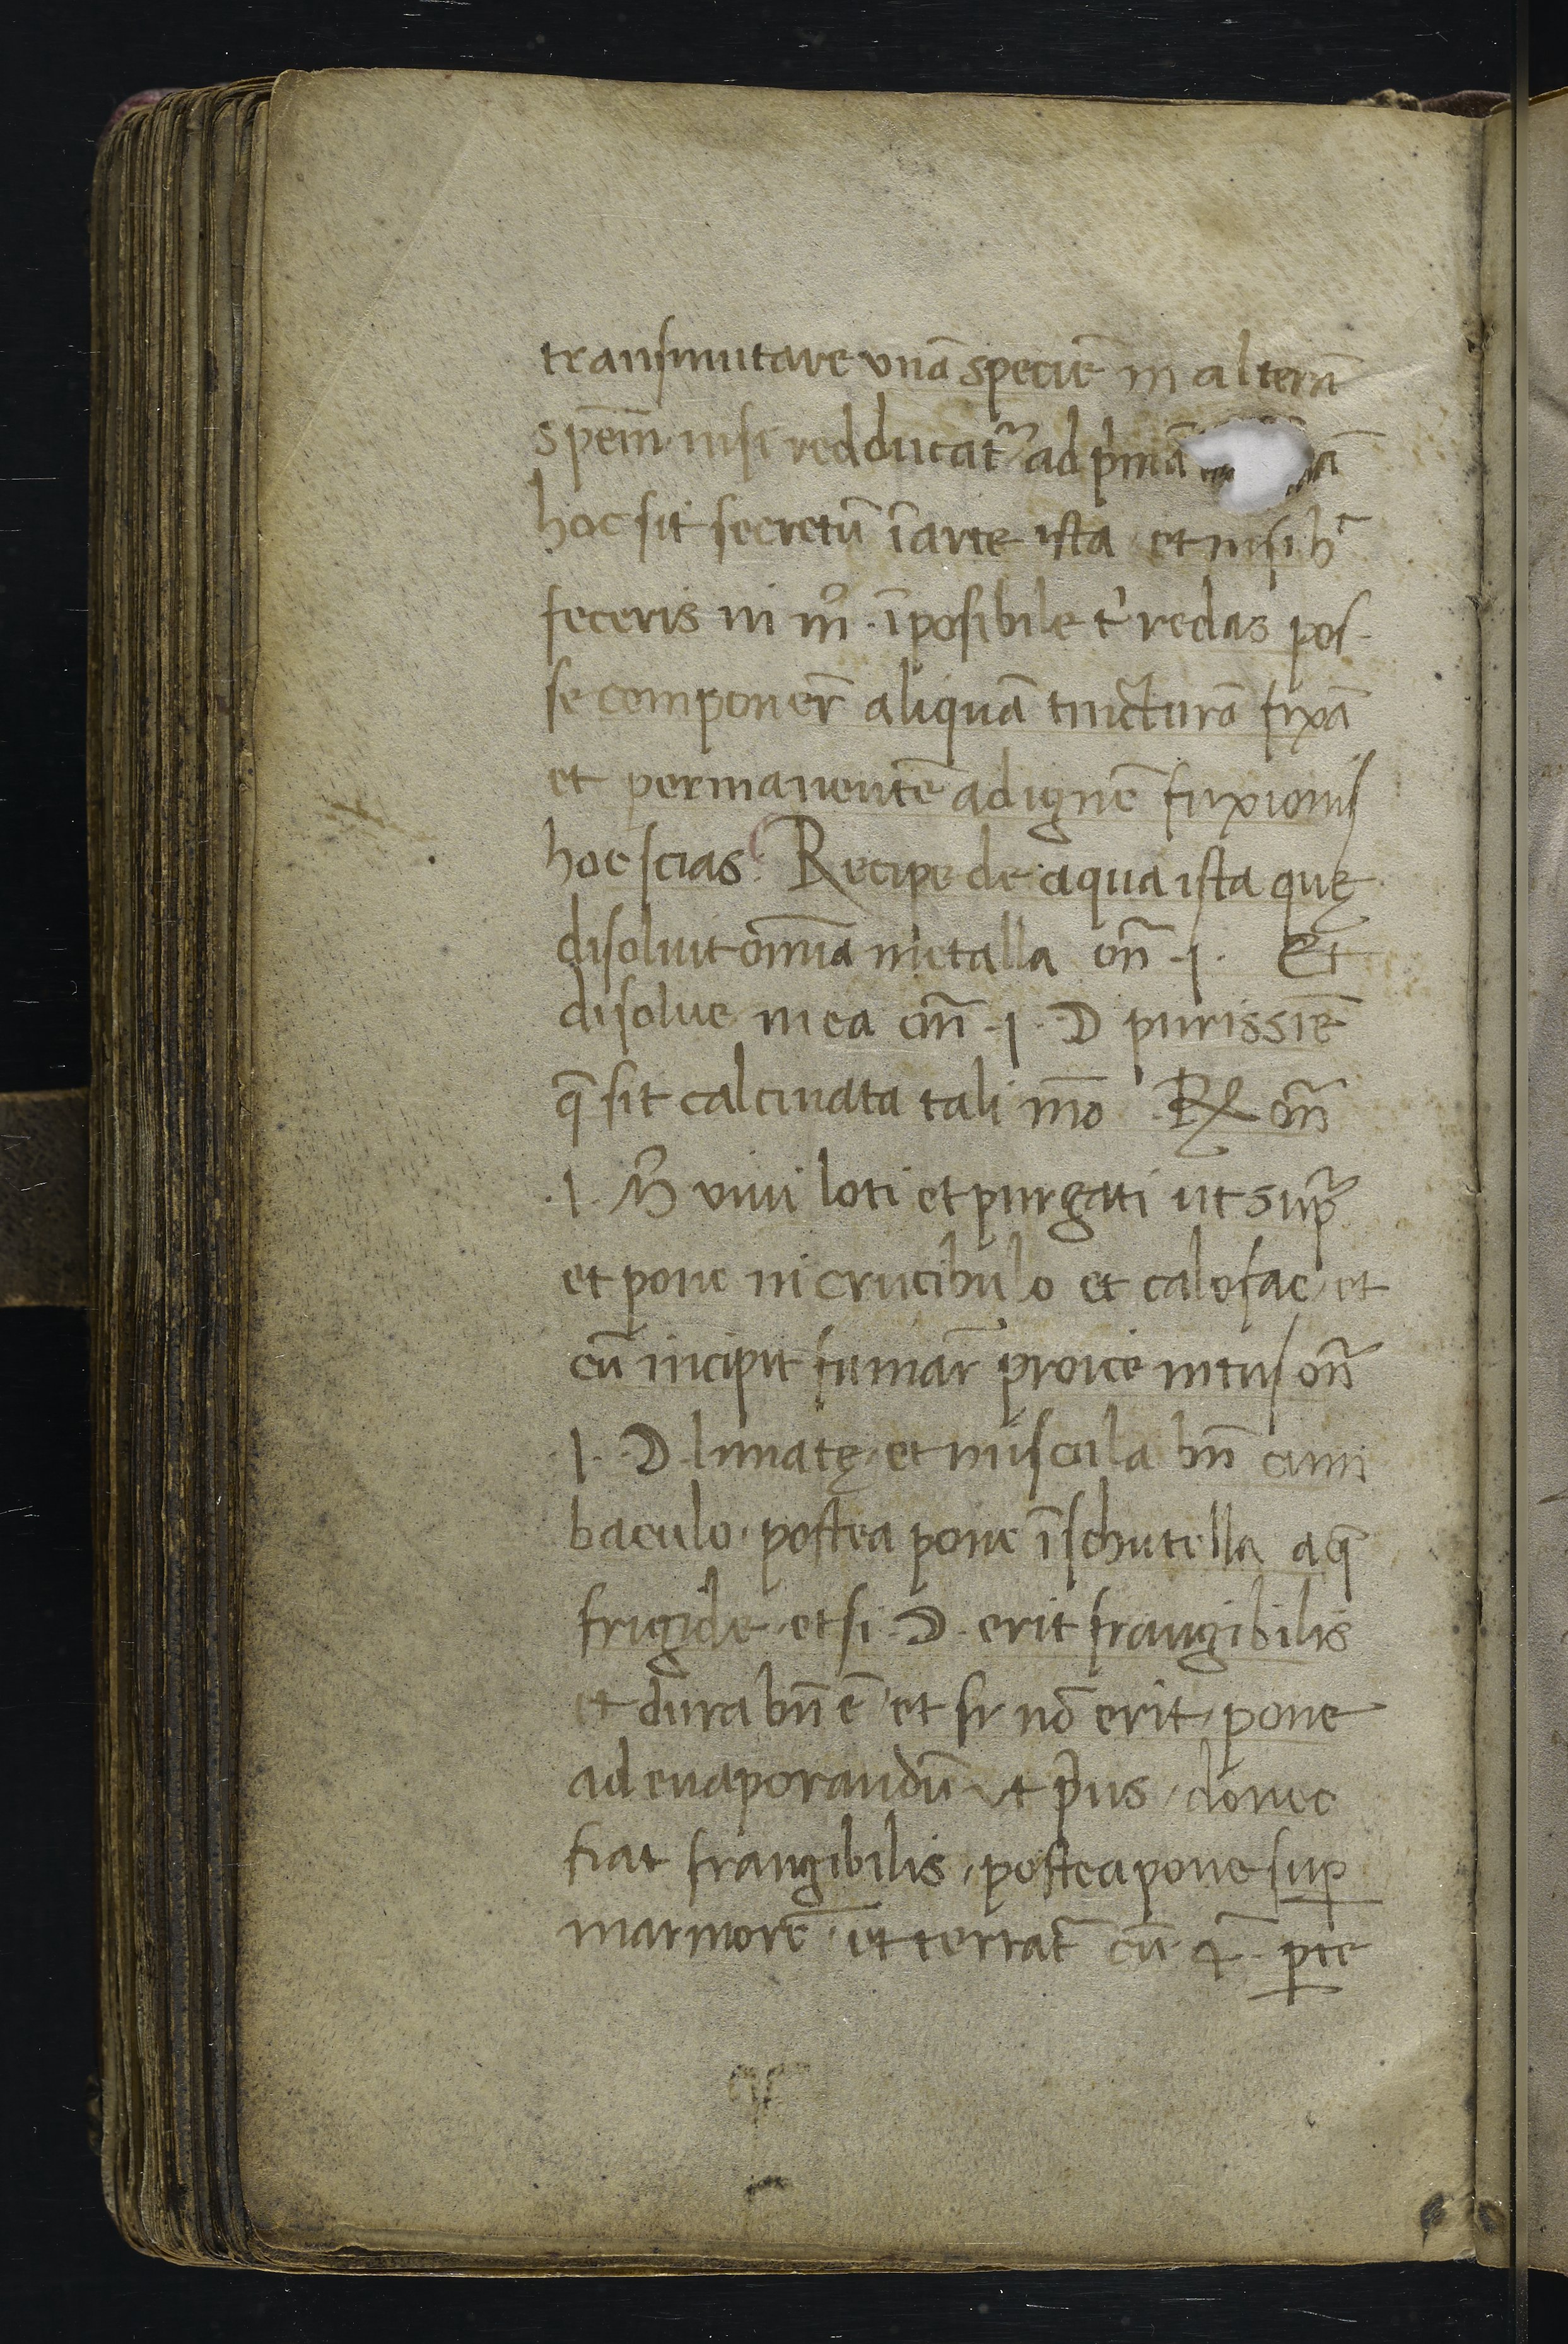 transmutare vnã speciẽ in alterã
spẽm nisi redducat᷑ ad p̍mã
hoc sit secretũ ĩ arte ista et nisi h͛
feceris in m̊ . ĩposibile t̍ redas pos-
se componer̃ aliquã tincturã fixã
et permanentẽ ad ignẽ fixionis
hoc scias. Recipe de aqua ista quę
disoluit om̃ia metalla on̄ .j. Et
disolue in ea on̄ .j. ☽ purissiẽ
q̃ sit calcinata tali mõ . ℞ on̄
.j. M̃ viui loti et purgati ut sup᷑
et pone in crucibulo et calefac et
cũ incipit fumar̃ proice intus on̄
.j. ☽ limatę et misceila bñ cum
baculo . postea pone ĩ schutella aq̃
frigide . et si . ☽ . erit frangibilis
et dura bñ ẽ et si nõ erit , pone
ad euaporandũ vt p̍us , donec
fiat frangibilis , postea pone suꝑ
marmorẽ . et terratr̃ cũ 4ᵃ . ꝑte